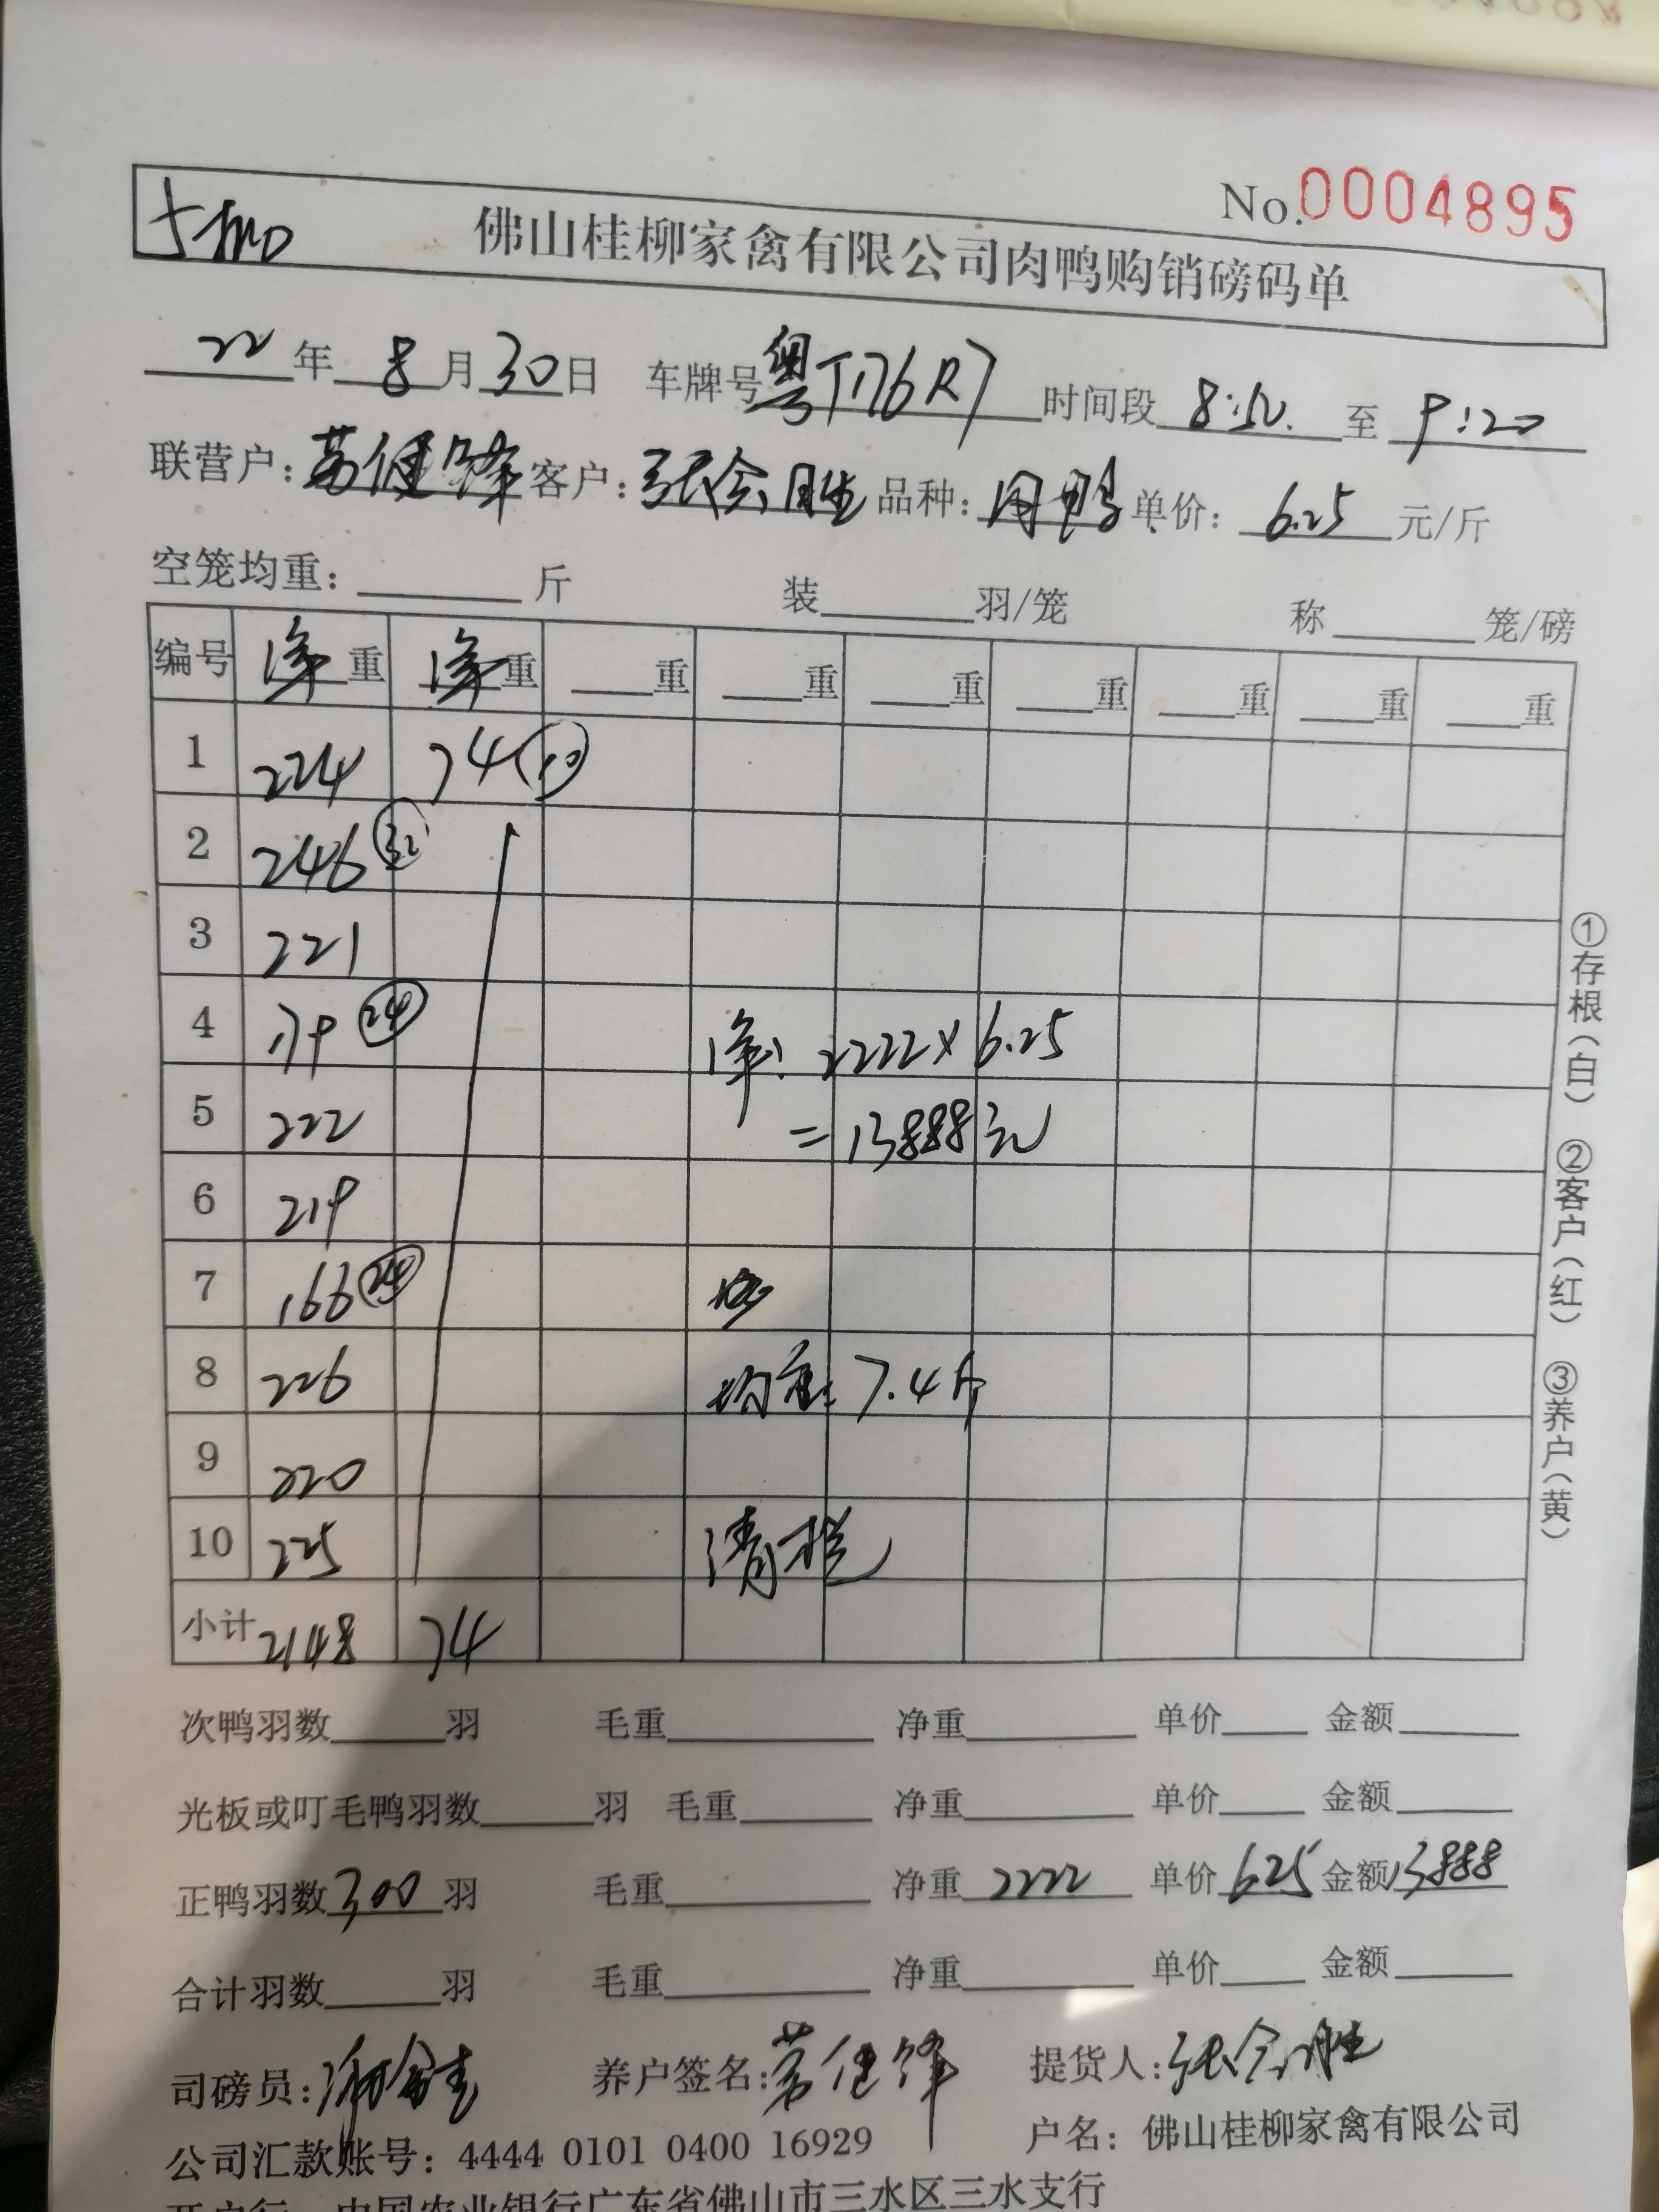 No.0004895
佛山桂柳家禽有限公司肉鸭购销磅码单
22年8月30日 车牌号粤T176R7 时间段8:50 至9:20
联营户：劳健锋 客户：张会胜 品种： 单价：6.25元/斤
空笼均重：____斤 装____羽/笼 称____笼/磅
编号 净重 净重 __重 __重 __重 __重 __重 __重 __重
1 224 74 (10)
2 246 (32)
3 221
4 179 (24) 净: 2222×6.25
5 222 =13888元
6 219
7 166 (24)
8 226 均重：7.4斤
9 220
10 225 清栏
小计 2148 74
次鸭羽数____羽 毛重____ 净重____ 单价____ 金额____
光板或叮毛鸭羽数____羽 毛重____ 净重____ 单价____ 金额____
正鸭羽数300羽 毛重____ 净重2222 单价6.25 金额13888
合计羽数____羽 毛重____ 净重____ 单价____ 金额____
司磅员： 养户签名：劳健锋 提货人：张会胜
公司汇款账号：4444 0101 0400 16929 户名：佛山桂柳家禽有限公司
开户行：中国农业银行广东省佛山市三水区三水支行
①存根（白） ②客户（红） ③养户（黄）